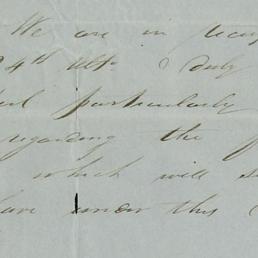 We are in
4th Ulto & duly
particularly
regarding the
which will
have under this